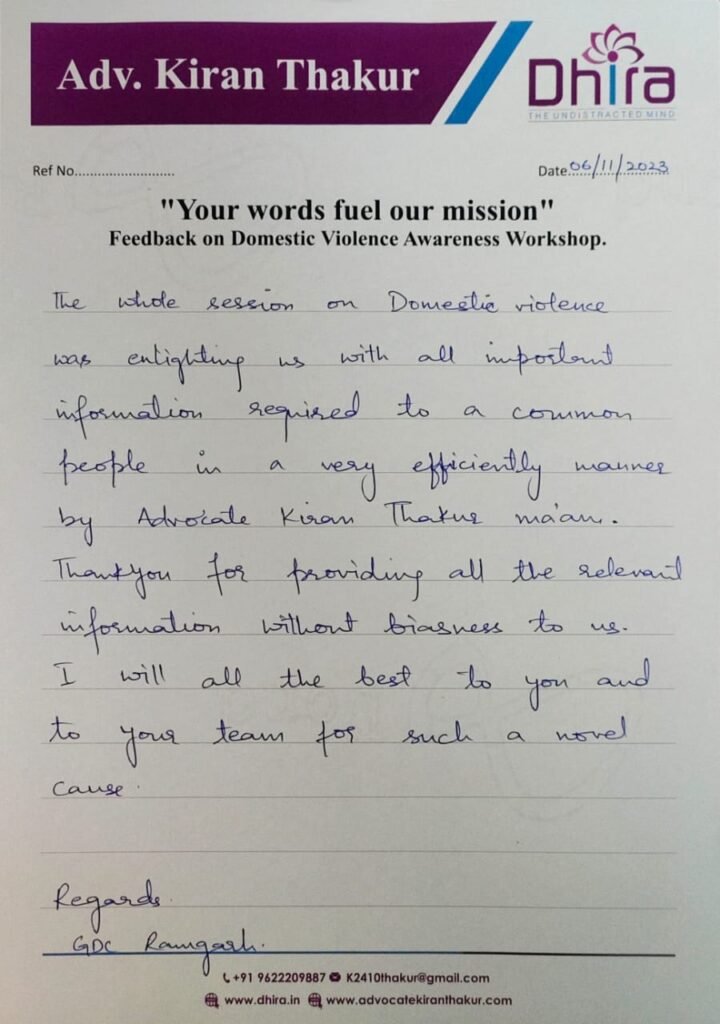 Adv. Kiran Thakur
Dhira
THE UNDISTRACTED MIND
Ref No.........................
Date 06/11/2023
"Your words fuel our mission"
Feedback on Domestic Violence Awareness Workshop.
The whole session on Domestic violence
was entlighting us with all important
information required to a common
people in a very efficiently manner
by Advocate Kiran Thakur ma'am.
Thankyou for providing all the relevant
information without biasness to us.
I will all the best to you and
to your team for such a novel
cause.
Regards.
GDC Ramgarh.
+91 9622209887 K2410thakur@gmail.com
www.dhira.in www.advocatekiranthakur.com